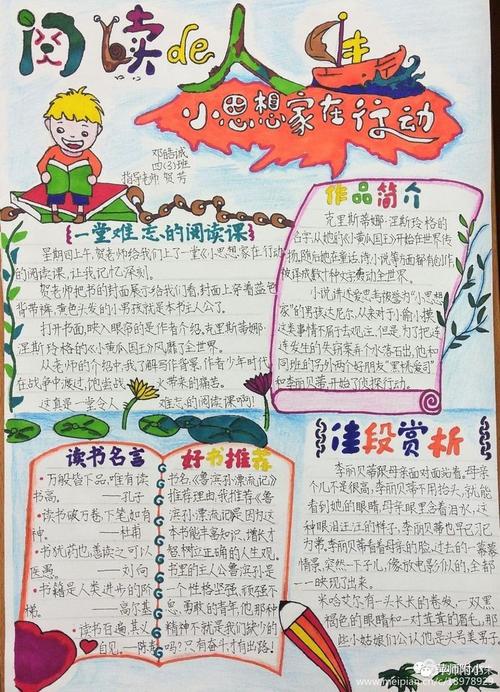 阅读de人生
小思想家在行动
邓皓诚
四(3)班
指导老师 贺芳
一堂难忘的阅读课
星期四上午,贺老师给我们上了一堂《小思想家在行动》
的阅读课,让我记忆深刻。
贺老师把书的封面展示给我们看,封面上穿着蓝色
背带裤,黄色头发的小男孩就是本书主人公了。
打开书面,映入眼帘的是作者介绍,克里斯蒂娜·
涅斯玲格的《小黄瓜国王》风靡了全世界。
从老师的介绍中,我了解写作背景,作者少年时代
在战争中渡过,饱尝战火带来的痛苦。
这真是一堂令人难忘的阅读课啊!
作品简介
克里斯蒂娜·涅斯玲格的
名字,从她的《小黄瓜国王》开始在世界传
扬,随后她在童话,诗,小说等方面都有创作
被译成数十种文字轰动全世界。
小说讲述爱思考被誉为“小思想
家”的男孩达尼尔,从来对于偷小摸
这类事情不屑于去观注,但是为了把连
连发生的失窃案弄个水落石出,他和
同班的另外两个好朋友“黑桃爱司”
和李丽贝蒂开始了侦探行动。
读书名言
万般皆下品,唯有读
书高。——孔子
读书破万卷,下笔如有
神。——杜甫
书犹药也,善读之可以
医愚。——刘向
书籍是人类进步的阶
梯。——高尔基
读书百遍,其义
自见。——陈
好书推荐
书名《鲁滨孙漂流记》
推荐理由我推荐《鲁
滨孙漂流记》是因为这
本书能丰富知识,增长才
智,树立正确的人生观。
书里的主人公鲁滨孙是
一个性格坚强,顽强不
息,勇敢的青年,他那种
精神不就是我们缺少的
吗?只有奋斗才有出路!
佳段赏析
李丽贝蒂跟母亲面对面站着。母亲
个儿不是很高,李丽贝蒂不用抬头,就能
看到她的眼睛,母亲眼里含着泪水,这
种眼泪汪汪的样子,李丽贝蒂也早已习
为常,李丽贝蒂看着母亲的脸,过去的一幕幕
情景,突然一下子儿,像放电影似的,全都
一一映现了出来。
米哈艾尔有一头长长的卷发,一双黑
褐色的眼睛和一对弯弯的眉毛,那
些小姑娘们公认他是头号美男子。
萍师附小
www.meipian.cn/c/18978929